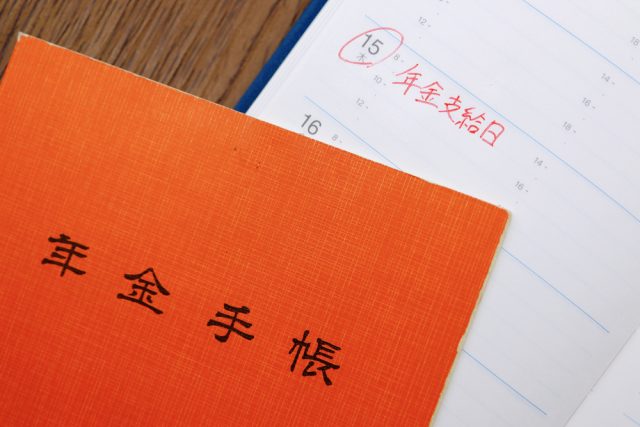 15
木
8-
10-
12-
14-
16-
18-
年金支給日
16
8-
12-
14-
16-
年金手帳